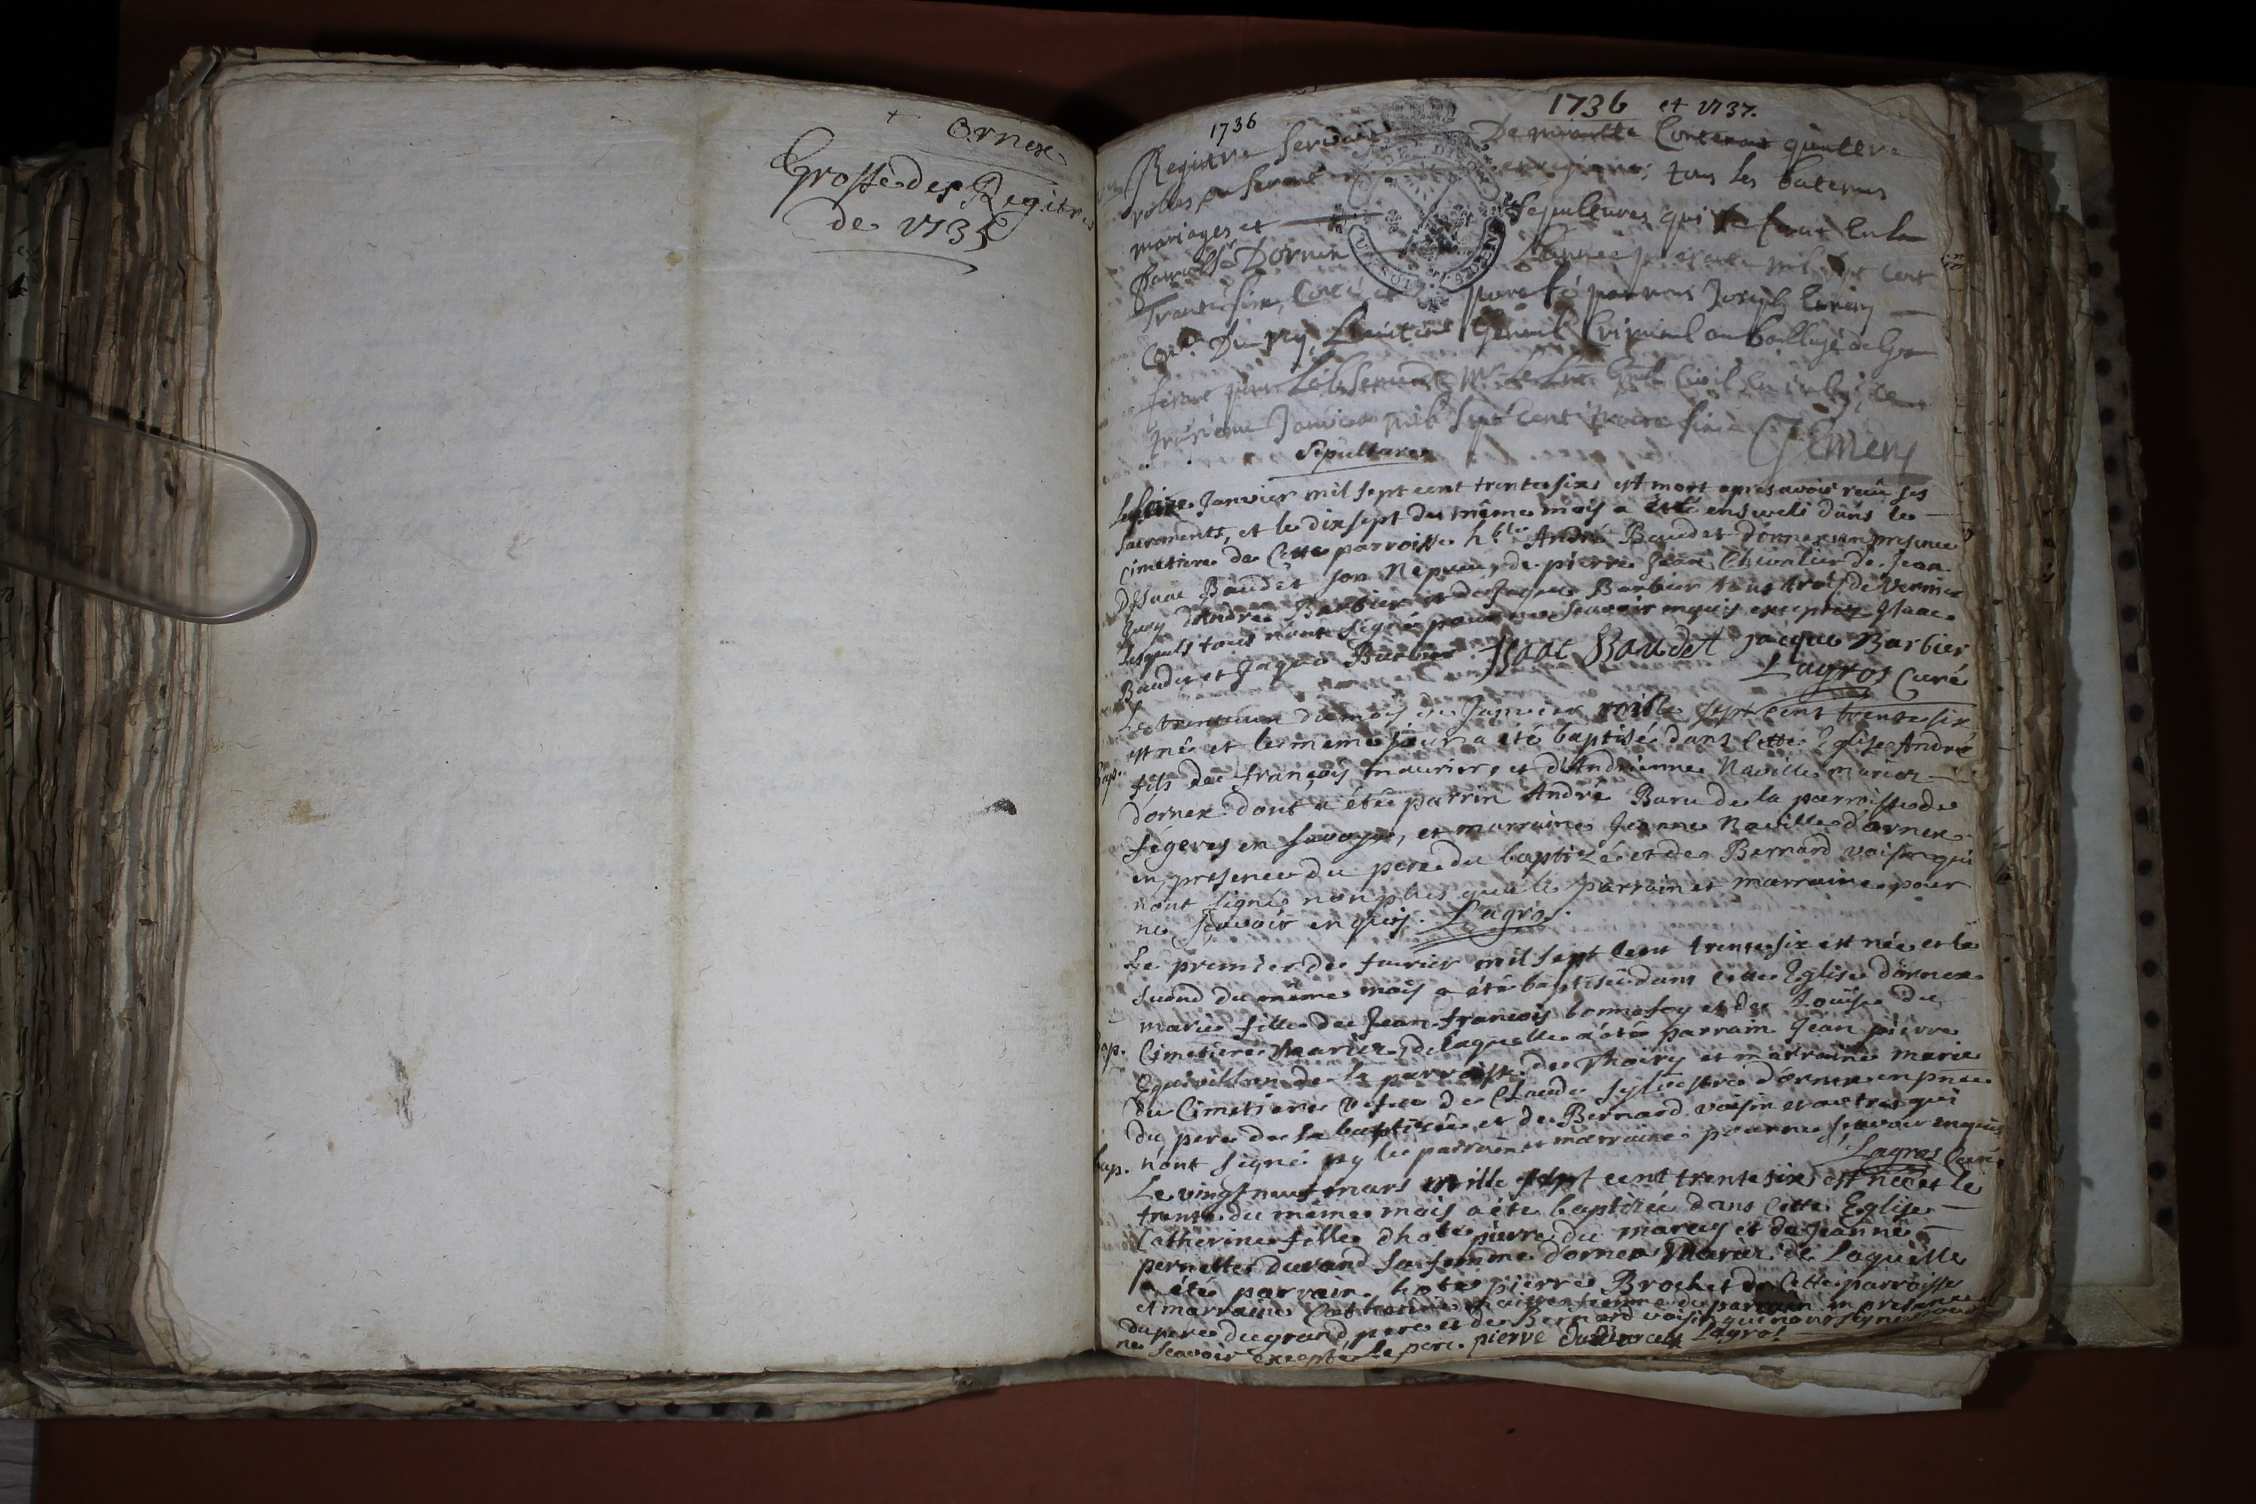 + Ornex
Grosse des Registres
de 1735
1736
1736 et 1737.
Registre servant De minutte Contenant quattre
rolles pour servant enregistrer tous les batemes
mariages et sepultures qui se feront En la
Parroisse Dornex L'annee presente mil sept cent
Trente six, Cotté et paraffé par nous Joseph Emery
Conr. Du Roy, Lieutent General Criminel au bailliage de Gex
faisant pour L'absence de Mr. le Lieut. Gnal Civil
troisieme Janvier mil sept cent trente six
J Emery
Sepultures
Le seize Janvier mil sept cent trente six est mort apres avoir reçû ses
sacrements, et le dix sept du même mois a été enseveli dans le
cimetiere de Cette parroisse hble André Baudet d'ornex en presence
D'Isaac Baudet son Nepveu, de pierre Jean Chevalier de Jean
d'André Barbier et de Jaques Barbier tous trois de Vernier
lesquels tous n'ont signé pour ne sçavoir enquis excepté Isaac
Baudet et Jaque Barbier. Isaac Baudet Jacque Barbier
Lagros Curé
Le trente un du mois de Janvier mille sept cent trente six
est né et le même jour a été baptisé dans Cette Eglise André
Bap. fils de françois maurier et d'Andrienne Naville mariez
d'ornex dont a été parrin André Baru de la parroisse de
fégeres en Savoye, et marraine Jeanne Naville d'ornex
en presence du pere du baptizé et de Bernard voisin qui
n'ont signé non plus que le parrain et marraine pour
ne sçavoir enquis. Lagros.
Le premier de fevrier mil sept cent trente six est née et le
second du même mois a été baptisée dans cette Eglise d'ornex
marie fille de Jean françois bonnefoy et de Louise du
Bap. Cimetiere mariez, de laquelle a été parrain Jean pierre
de la parroisse de Thoiry et marraine marie
du Cimetiere vefve de Claude Sylvestre d'ornex en pnce
du pere de la baptisée et de Bernard voisin et autres qui
n'ont signé ny les parrain et marraine pour ne sçavoir enquis
Lagros Curé
Bap. Le vingt neuf mars mille sept cent trente six est née et le
trente du même mois a été baptisée dans Cette Eglise
Catherine fille d'hote pierre du marcey et de Jeanne
pernette Durand sa femme d'ornex mariez de Laquelle
a été parrain hote pierre Brochet de Cette parroisse
et marraine Catherine femme du parrain en presence
du pere du grand pere et de Bernard voisin qui n'ont signé pour
ne sçavoir excepté le pere. pierre Lagros